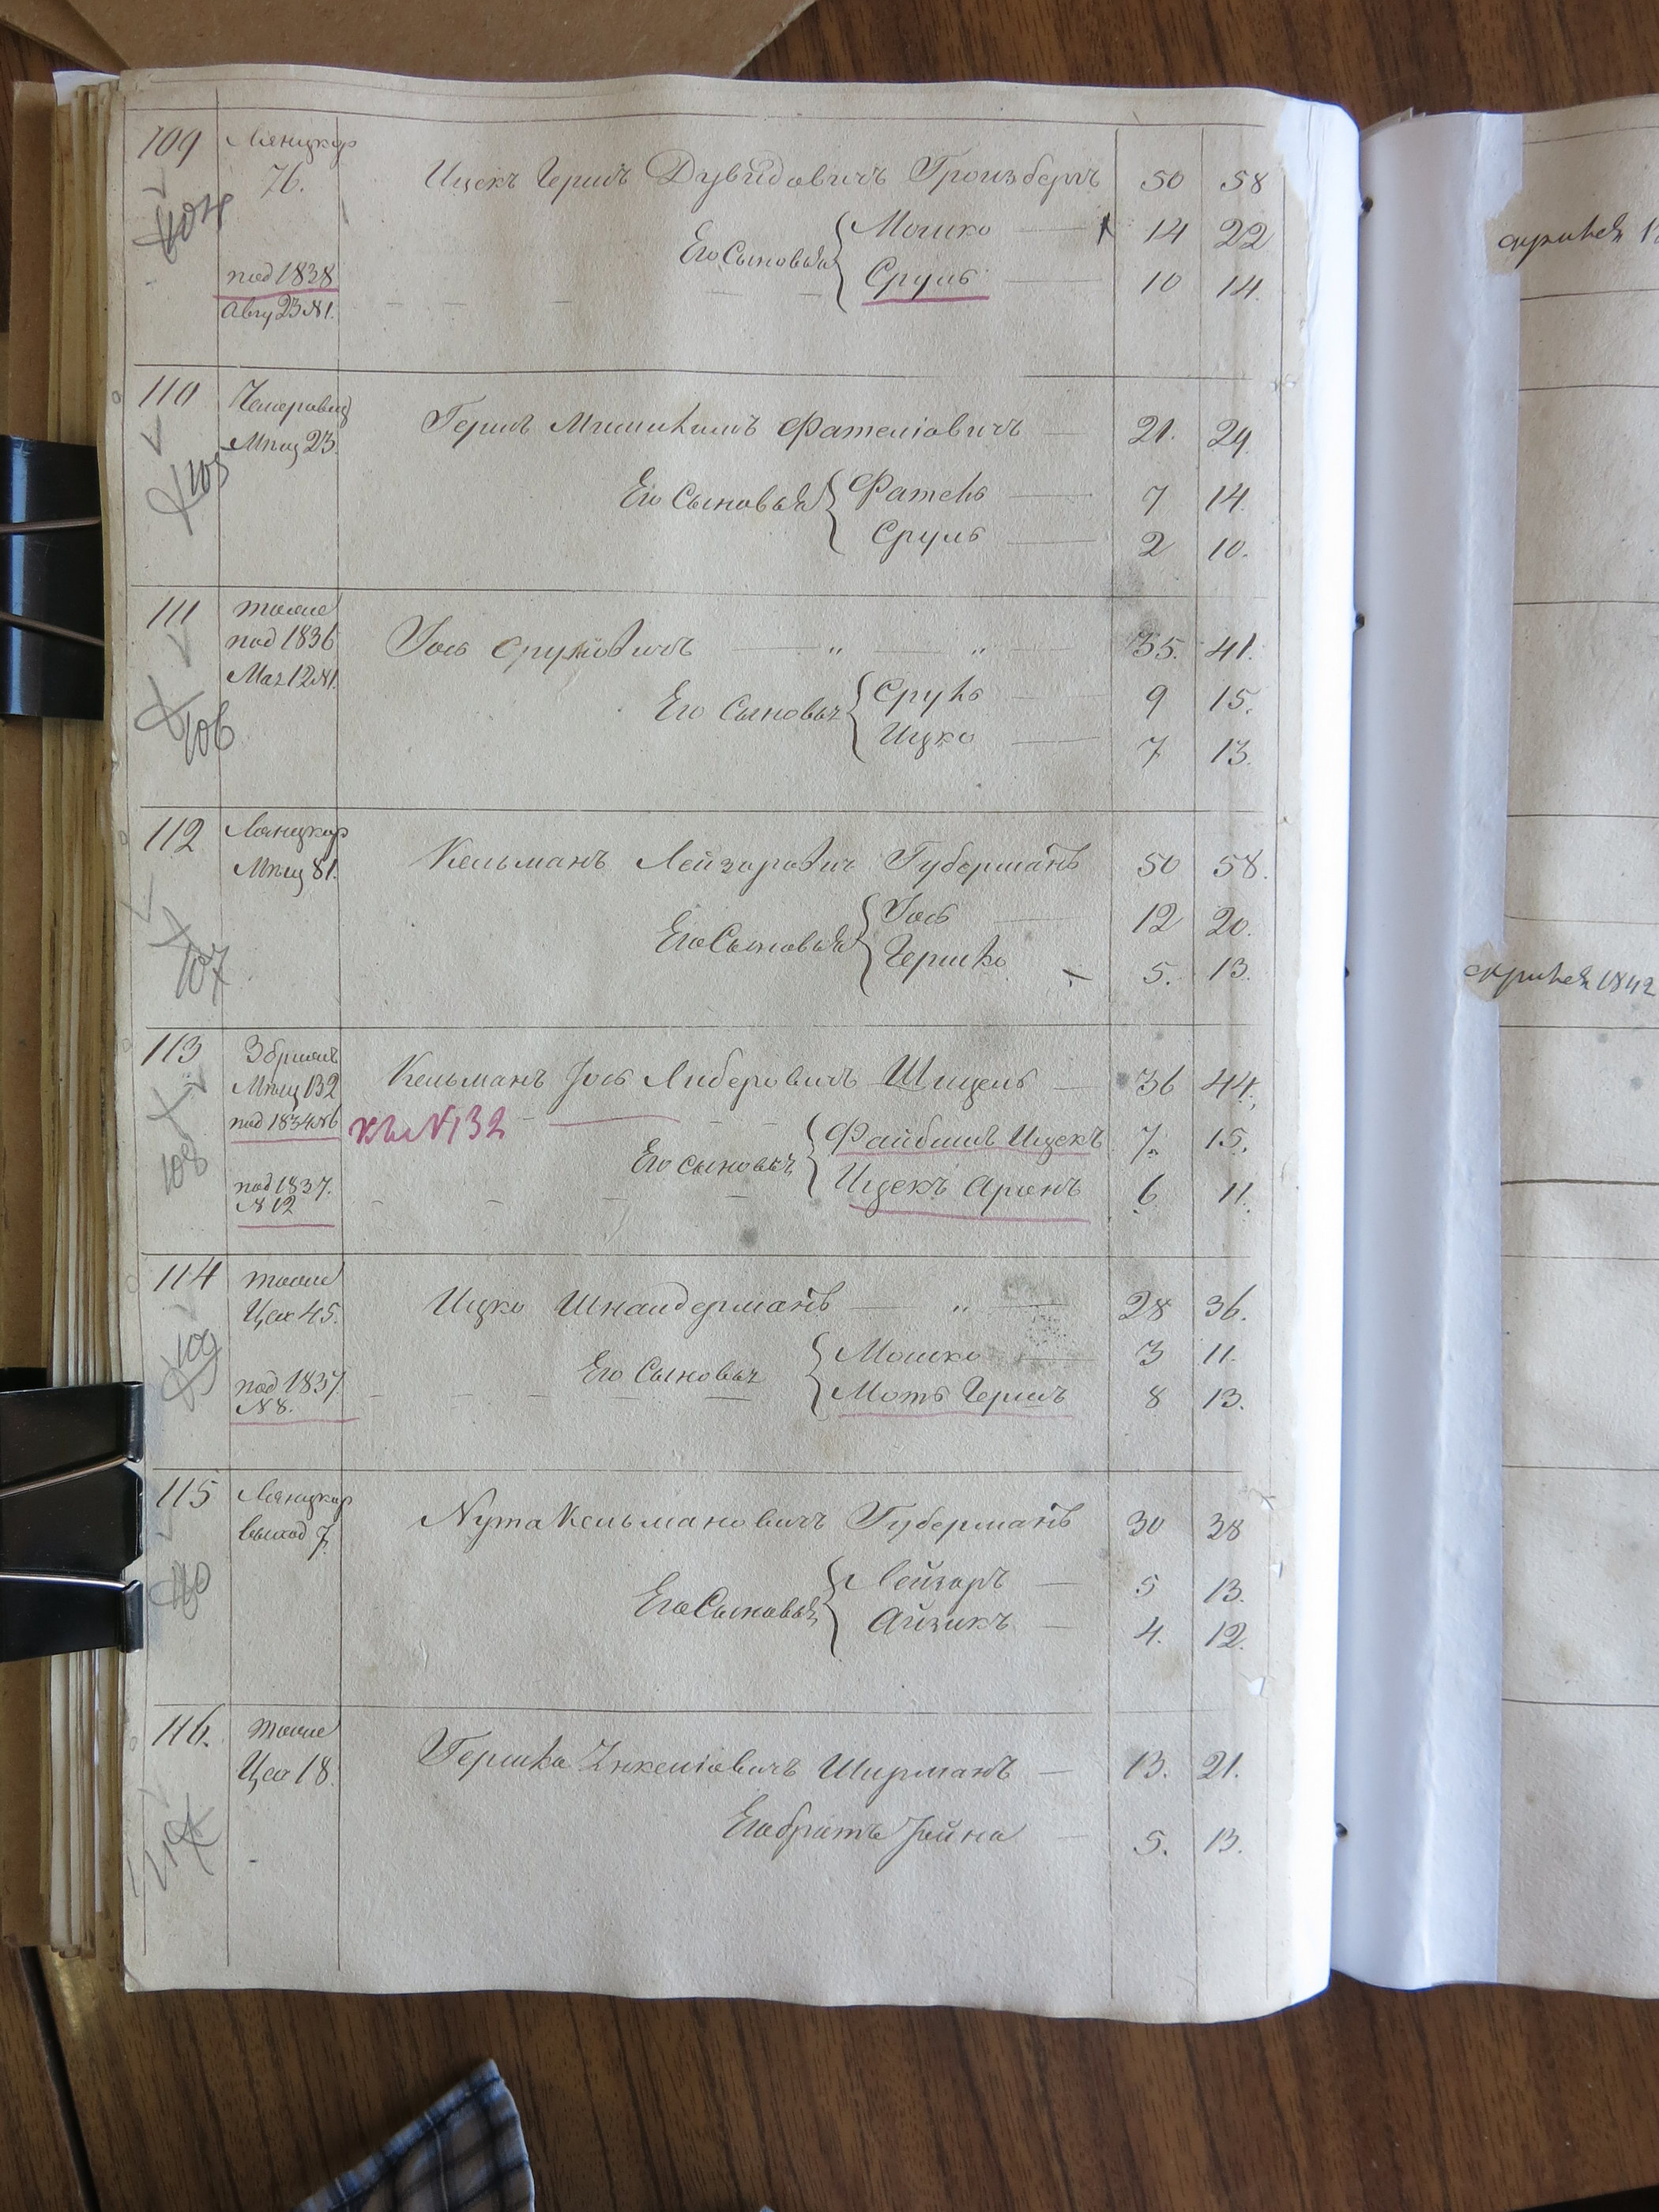 109 Лянцкор
76. Ицекъ Гершъ Дувидовичъ Гроизберъ 50 58
Его Сыновья Мошко 14 22
104
под 1838 Сруль 10 14.
Авгу 23 №1.
110 Чемеровец
Мпщ 23. Гершъ Фателіовичъ 21. 29.
105
Его Сыновья Фатель 7 14.
Сруль 2 10.
111 тоже
под 1836
Маг 12 №1. Іось Срулiовичъ „ „ 35. 41.
106
Его Сыновья Сруль 9 15.
Ицко 7 13.
112 Лянцкор
Мпщ 81. Кельманъ Лейзорович Губерманъ 50 58.
Его Сыновья Іось 12 20.
Гершко 5. 13.
107
113 Збриж
Мпщ 132 Кельманъ Іось Либеровичъ Шицель 36 44.
под 1834 №6 къ №132
108
Его сыновья Файбишъ Ицекъ 7. 15.
под 1837.
№12 Ицекъ Аронъ 6 11.
114 тоже
Цех 45. Ицко Шнаидерманъ „ 28 36.
109
Его Сыновья Мошко 3 11.
под 1837
№8. Моть Гершъ 8 13.
115 Лянцкор
выход 7. Нута Кельмановичъ Губерманъ 30 38
110
Его Сыновья Лейзоръ 5 13.
Айзикъ 4. 12.
116. тоже
Цех 18. Гершко Янкеліовичъ Ширманъ 13. 21.
Его братъ Іойна 5. 13.
1842